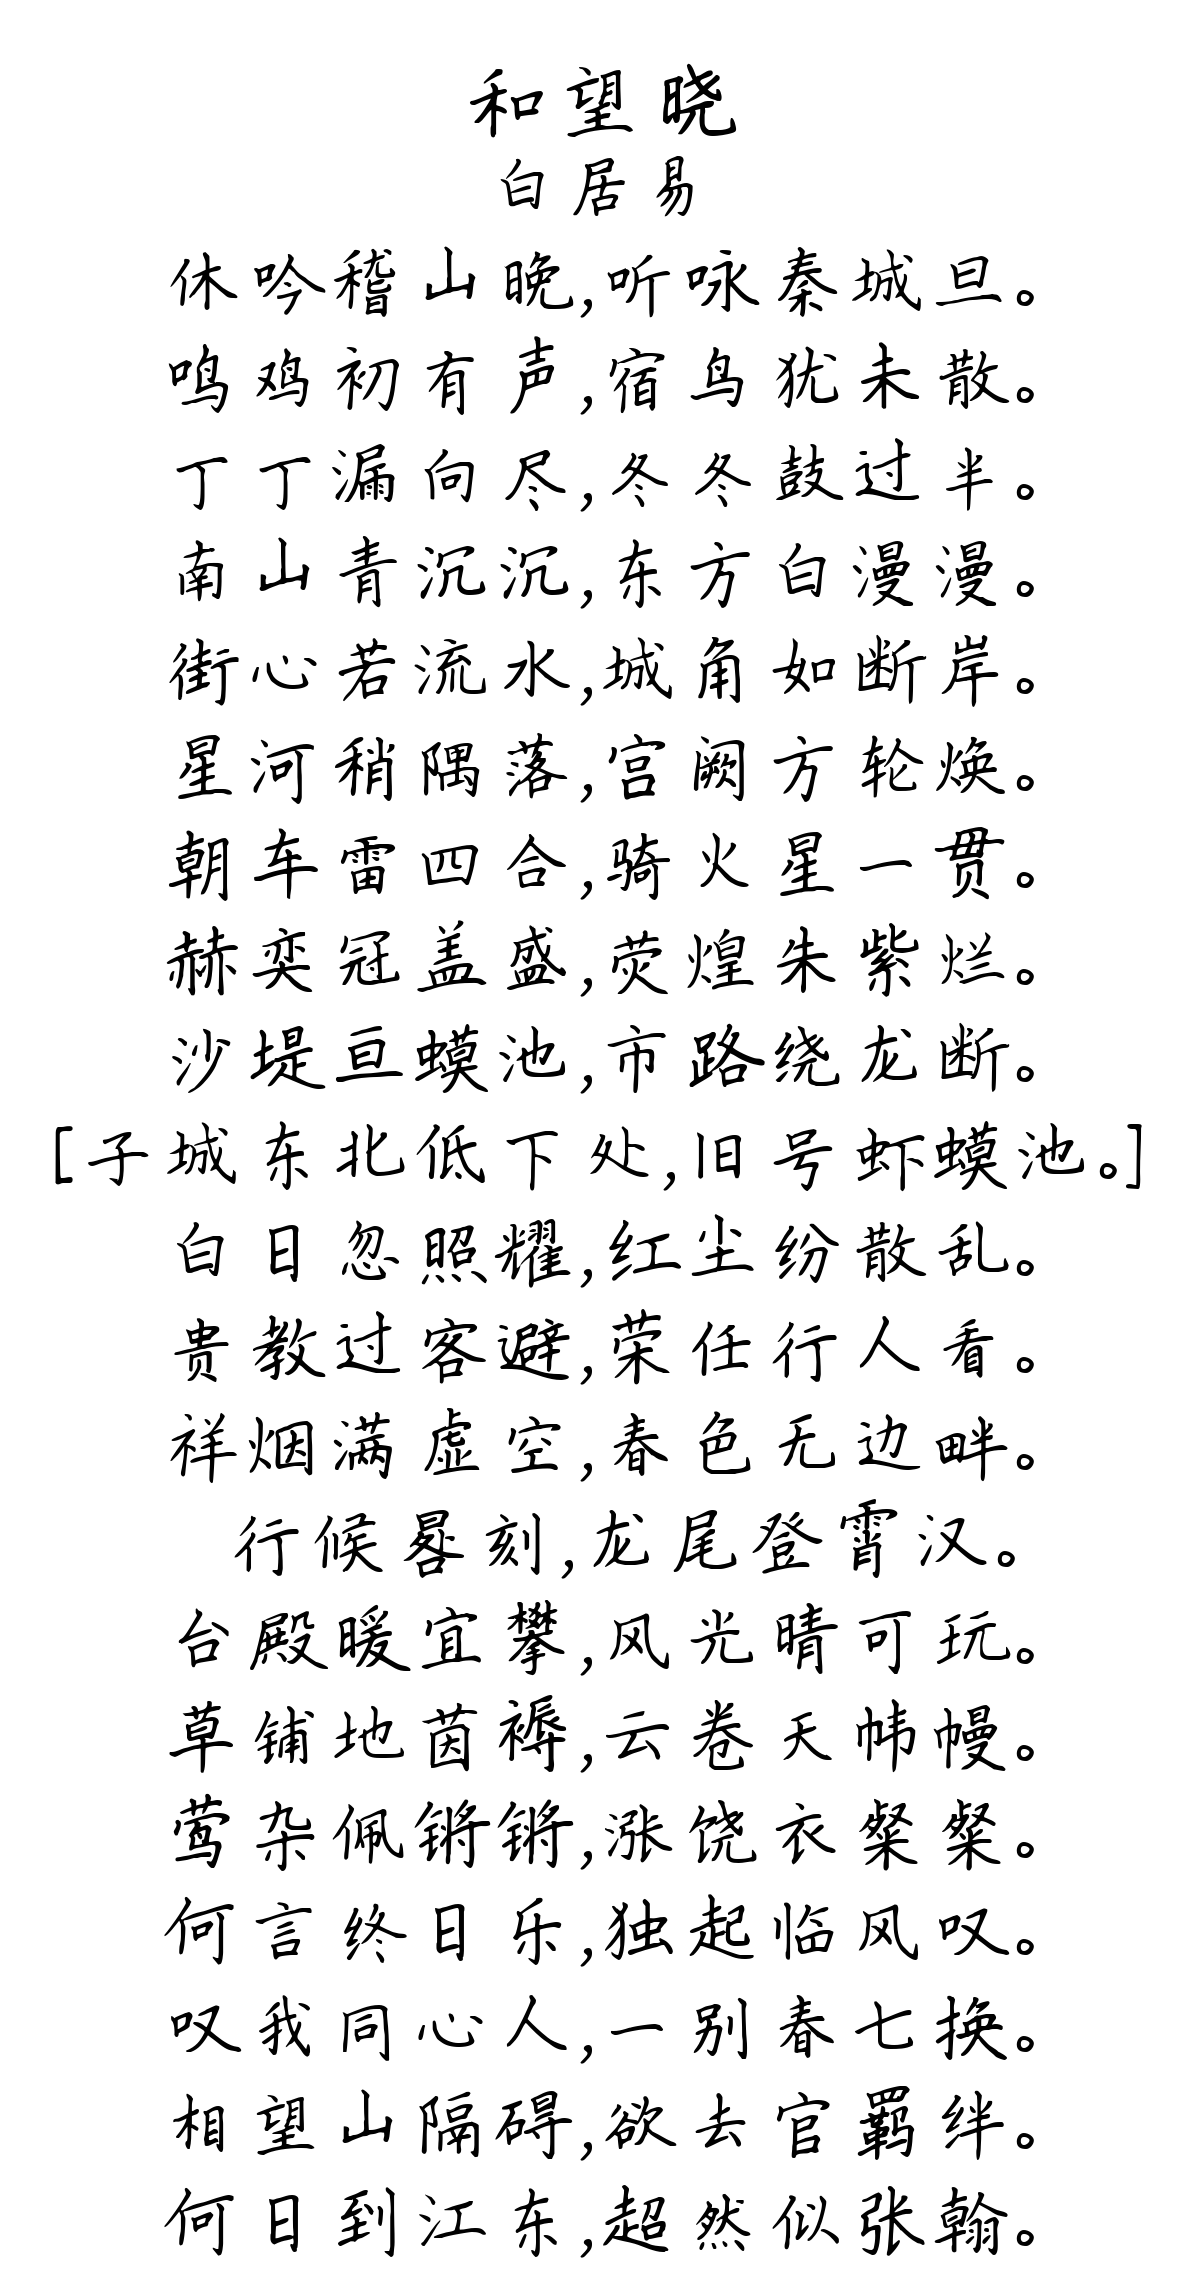 和望晓
白居易
休吟稽山晚,听咏秦城旦。
鸣鸡初有声,宿鸟犹未散。
丁丁漏向尽,冬冬鼓过半。
南山青沉沉,东方白漫漫。
街心若流水,城角如断岸。
星河稍隅落,宫阙方轮焕。
朝车雷四合,骑火星一贯。
赫奕冠盖盛,荧煌朱紫烂。
沙堤亘蟆池,市路绕龙断。
[子城东北低下处,旧号虾蟆池。]
白日忽照耀,红尘纷散乱。
贵教过客避,荣任行人看。
祥烟满虚空,春色无边畔。
行候晷刻,龙尾登霄汉。
台殿暖宜攀,风光晴可玩。
草铺地茵褥,云卷天帏幔。
莺杂佩锵锵,涨饶衣粲粲。
何言终日乐,独起临风叹。
叹我同心人,一别春七换。
相望山隔碍,欲去官羁绊。
何日到江东,超然似张翰。